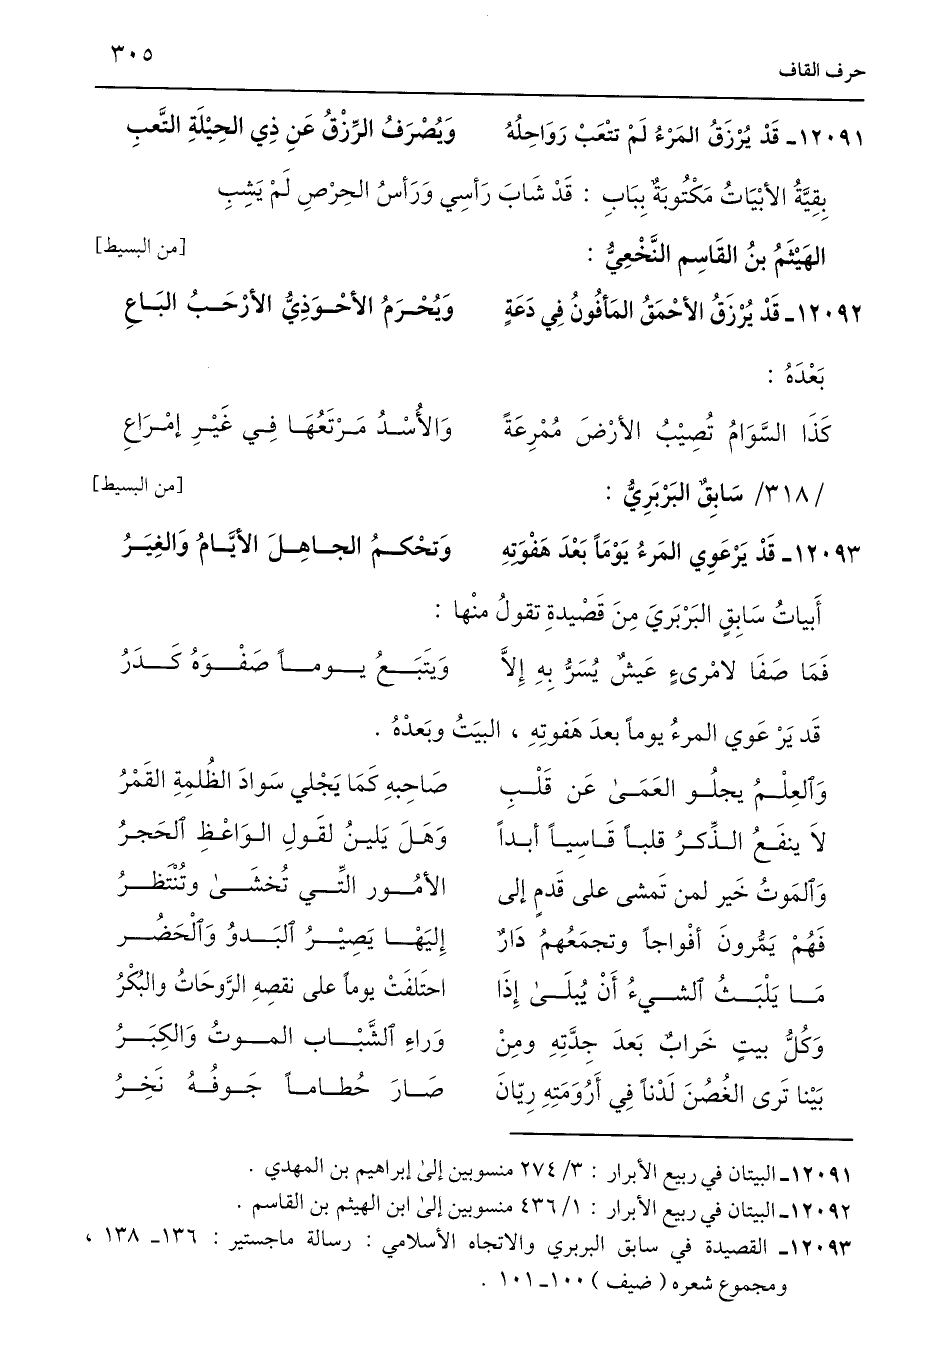 حرف القاف ٣٠٥
١٢٠٩١ـ قَدْ يُرْزَقُ المَرْءُ لَمْ تتْعَبْ رَوَاحِلُهُ وَيُصْرَفُ الرِّزْقُ عَنِ ذِي الحِيْلَةِ التَّعبِ
بقِيَّةُ الأبْيَاتُ مَكْتُوبَةٌ بِبَابِ : قَدْ شَابَ رَأسِي وَرَأسُ الحِرْصِ لَمْ يَشِبِ
الهَيْثَمُ بنُ القَاسِمِ النَّخْعِيُّ : [من البسيط]
١٢٠٩٢ـ قَدْ يُرْزَقُ الأحْمَقُ المَأفُونُ فِي دَعَةٍ وَيُحْرَمُ الأحْوَذِيُّ الأرْحَبُ البَاعِ
بَعْدَهُ :
كَذَا السَّوَامُ تُصِيْبُ الأرْضَ مُمْرِعَةً وَالأُسْدُ مَرْتَعُهَا فِي غَيْرِ إمْرَاعِ
/٣١٨/ سَابِقٌ البَرْبَرِيُّ : [من البسيط]
١٢٠٩٣ـ قَدْ يَرْعَوِي المَرءُ يَوْمَاً بَعْدَ هَفْوَتِهِ وَتَحْكمُ الجاهِلَ الأيَّامُ وَالغِيَرُ
أَبياتُ سَابِقٍ البَرْبَرِيَ مِنَ قَصْيدةِ تقولُ منْها :
فَمَا صَفَا لامْرىءٍ عَيشٌ يُسَرُّ بِهِ إلاَّ وَيَتبَعُ يوماً صَفْوَهُ كَدَرُ
قَد يَرْ عَوي المرءُ يوماً بعدَ هَفوتِهِ ، البيَتُ وبَعدْهُ .
وَٱلعِلْمُ يجلُو العَمَىٰ عَن قَلْبِ صَاحِبهِ كَمَا يَجْلي سَوادَ الظُلمةِ القَمْرُ
لاَ ينفَعُ الذِّكرُ قلباً قَاسِياً أبداً وَهَلَ يَلينُ لقَولِ الوَاعْظِ ٱلحَجرُ
وَٱلمَوتُ خَير لمن تَمشى على قَدمٍ إلى الأمُور التَّي تُخشَىٰ وتُنْتَظرُ
فَهُمْ يَمُّرونَ أفْواجاً وتجمَعُهمُ دَارٌ إليَهْا يَصِيْرُ ٱلبَدوُ وَٱلْحَضُر
مَا يَلْبَثُ ٱلشيءُ أَنْ يُبلَىٰ إذَا احتَلفَتْ يوماً على نقصِهِ الرَّوحَاتُ والبُكْرُ
وَكُلُّ بيتٍ خَرابٌ بَعدَ جِدَّتِهِ ومِنْ وراءِ ٱلشَّبْابِ الموتُ وَالكِبَرُ
بَيْنا تَرى الغُصُنَ لَدْناً فِي أَرُوَمَتِهِ رِيّانَ صَارَ حُطاماً جَوفُهُ نَخِرُ
١٢٠٩١ـ البيتان في ربيع الأبرار : ٣/ ٢٧٤ منسوبين إلىٰ إبراهيم بن المهدي .
١٢٠٩٢ـ البيتان في ربيع الأبرار : ١/ ٤٣٦ منسوبين إلىٰ ابن الهيثم بن القاسم .
١٢٠٩٣ـ القصيدة في سابق البربري والاتجاه الأسلامي : رسالة ماجستير : ١٣٦ـ ١٣٨ ،
ومجموع شعره ( ضيف ) ١٠٠ـ ١٠١ .